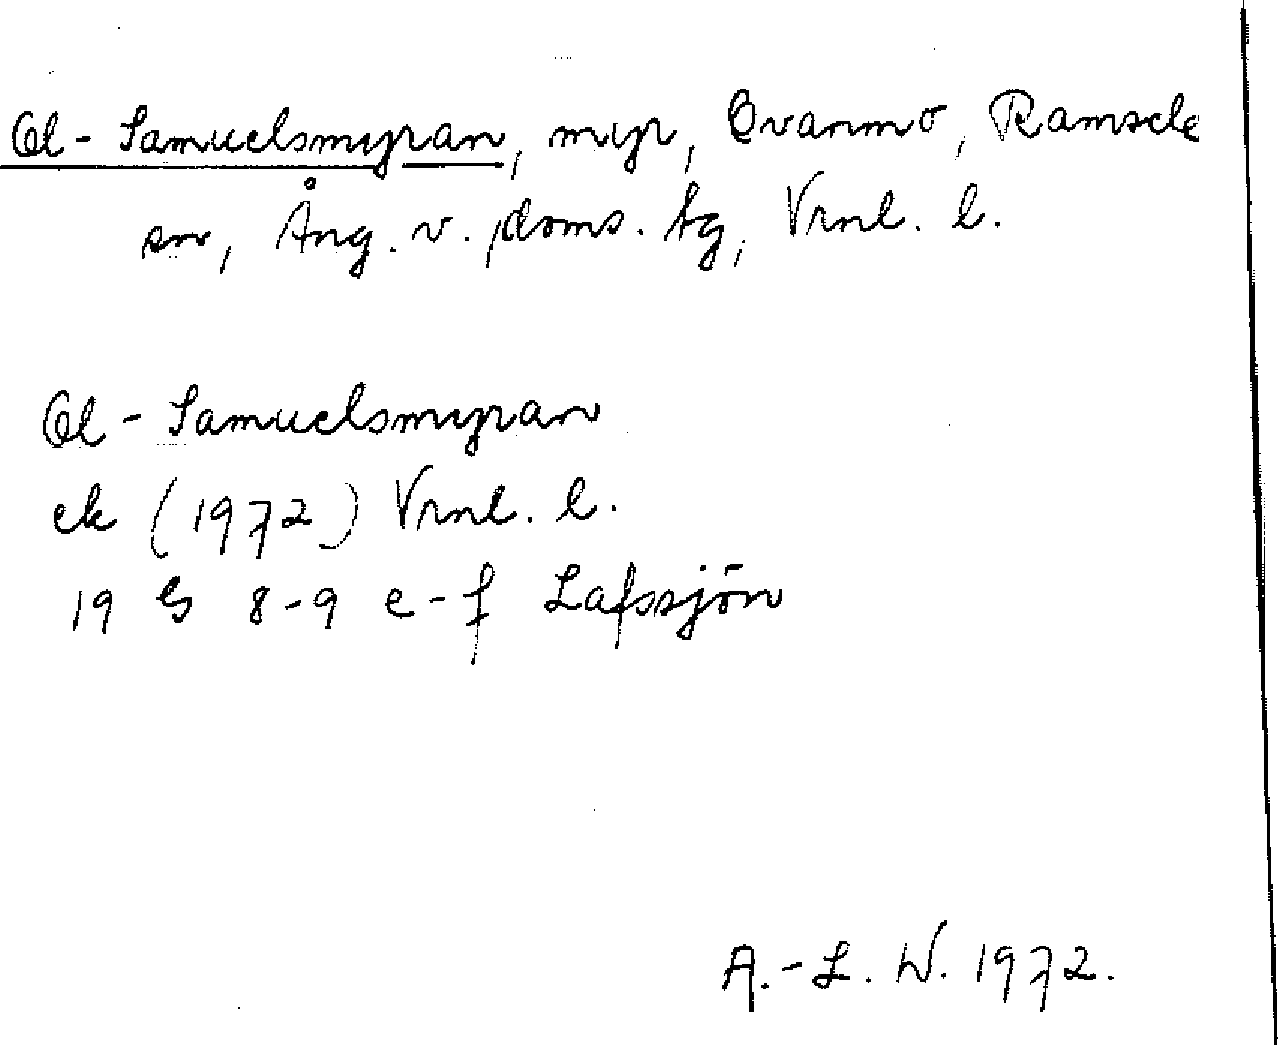 Ol-Samuelsmyran, myr, Ovanmo, Ramsele
sn, Ång. v. doms. tg, Vrnl. l.
Ol-Samuelsmyran
ek (1972) Vrnl. l.
19 G 8-9 e-f Lafssjön
A.-L. W. 1972.